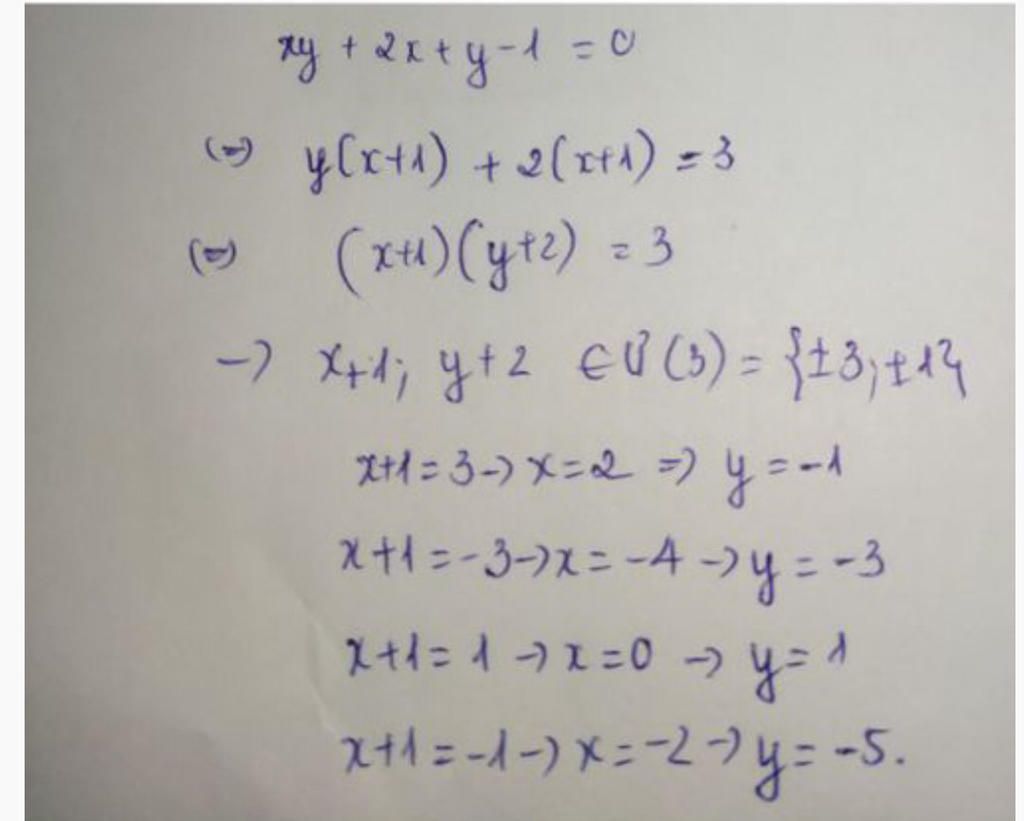 xy + 2x + y - 1 = 0
(=) y(x+1) + 2(x+1) = 3
(=) (x+1)(y+2) = 3
-> x+1; y+2 ∈ Ư(3) = {±3; ±1}
x+1 = 3 -> x = 2 => y = -1
x+1 = -3 -> x = -4 -> y = -3
x+1 = 1 -> x = 0 -> y = 1
x+1 = -1 -> x = -2 -> y = -5.